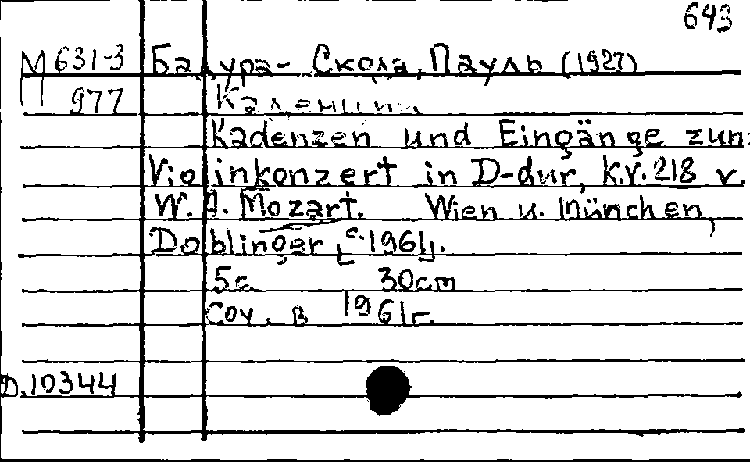 643
М 631-3 Бадура-Скода, Пауль (1927)
П 977 Каденции
Kadenzen und Eingänge zum
Violinkonzert in D-dur, K.V. 218 v.
W. A. Mozart. Wien u. München,
Doblinger [c. 1961].
5 с. 30 cm
Соч. в 1961 г.
D.10344